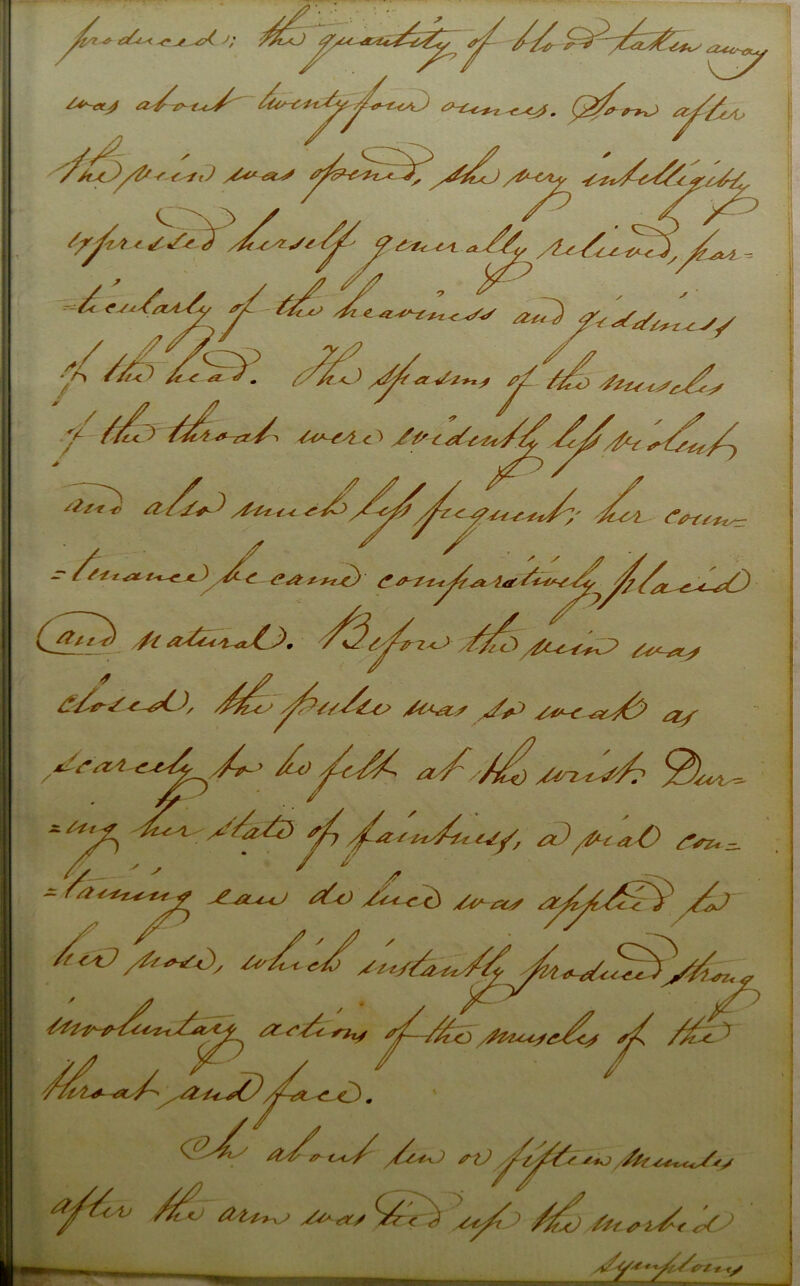 produced; the quantity of blood taken away
was about twenty four ounces. Soon after
the vein was opened, she very intelligibly
expressed herself generally relieved, par=
=ticularly of the heaviness and giddiness
of the head. The spasms of the muscles
of the throat were evidently less violent,
and also much less frequent; her coun=
=tenance became comparatively placid
and natural. Before the vein was
closed, the pulse was so weak as
scarcely to be felt at the wrist. Dur=
=ing her state of faintness, a vial con=
=taining eau de luce was applied to
her nose, which instantly produced strong
involuntary actions of the muscles of the
throat and face.
In about ten or fifteen minutes
after the arm was tied up the morbid
symptoms